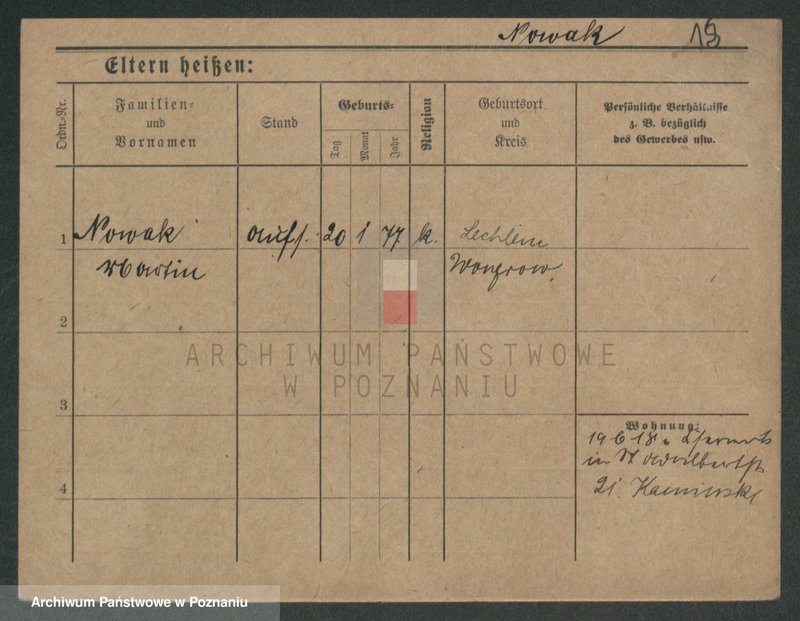 Nowak 19
Eltern heißen:
Ordn.-Nr.
Familien-
und
Vornamen
Stand
Geburts-
Tag
Monat
Jahr
Religion
Geburtsort
und
Kreis
Persönliche Verhältnisse
z. B. bezüglich
des Gewerbes usw.
1 Nowak 20 1 77 k. Lechlin
Martin Wongrow.
2
ARCHIWUM PAŃSTWOWE
W POZNANIU
3
Wohnung:
19 6 18
in
4
21. Kaminski
Archiwum Państwowe w Poznaniu